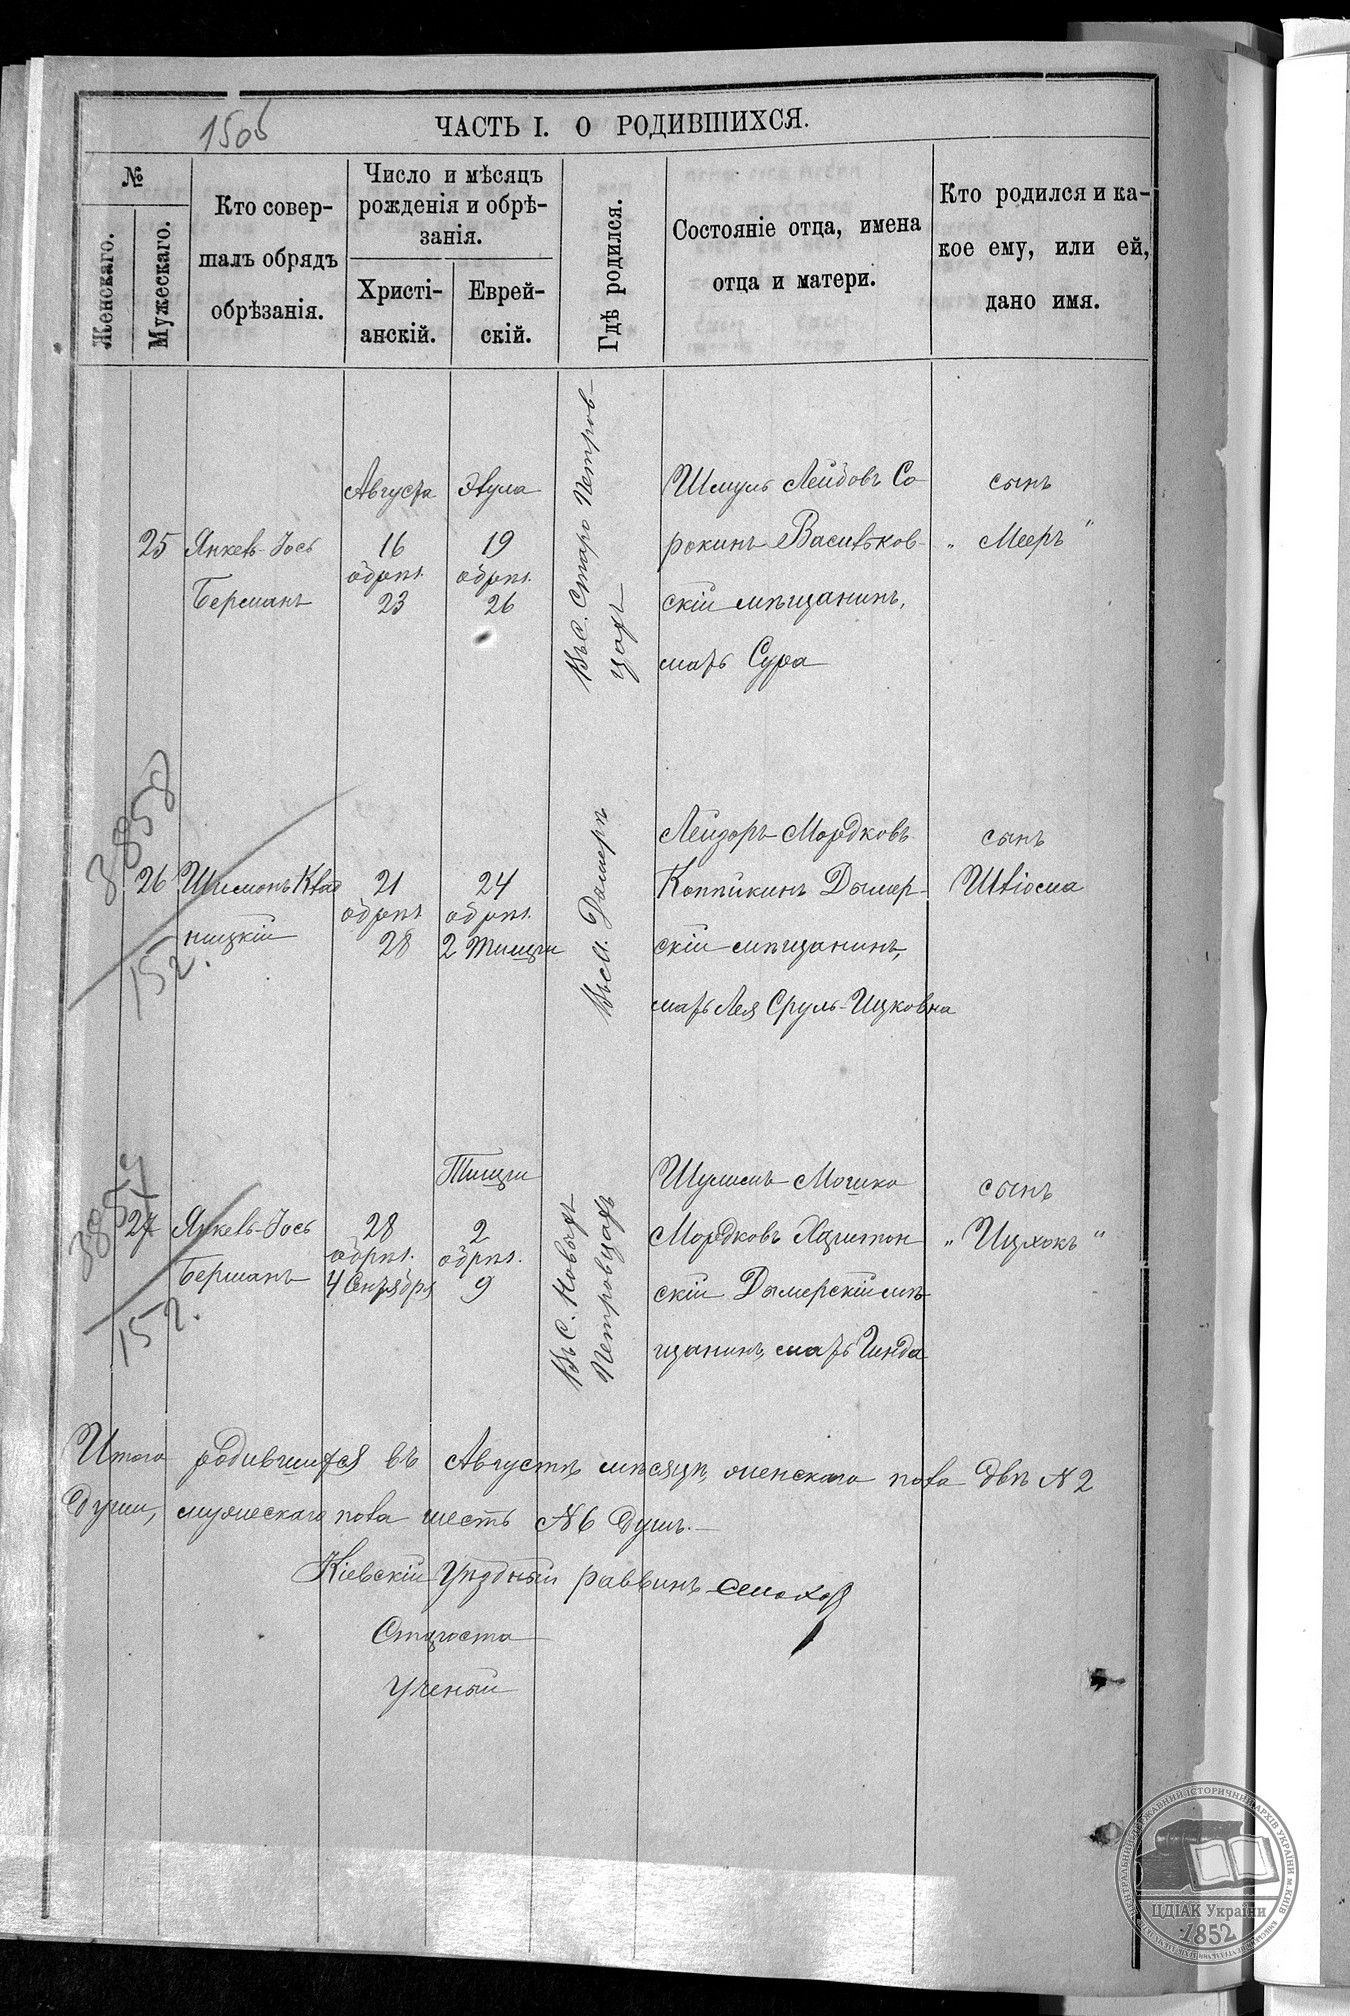 1505
ЧАСТЬ I. О РОДИВШИХСЯ.
№
Женскаго.
Мужескаго.
Кто совер-
шалъ обрядъ
обрѣзанія.
Число и мѣсяцъ
рожденія и обрѣ-
занія.
Христі-
анскій.
Еврей-
скій.
Гдѣ родился.
Состояніе отца, имена
отца и матери.
Кто родился и ка-
кое ему, или ей,
дано имя.
25
Янкель-Іось
Берманъ
Августа
16
обрѣз.
23
Элула
19
обрѣз.
26
Въ С. Старо Петров-
цахъ
Шмуль Лейбовъ Со
рокинъ Васильков-
скій мѣщанинъ,
мать Сура
сынъ
„ Мееръ "
3858
26
152.
Шимонъ
ницкій
21
обрѣз.
28
24
обрѣз.
2 Тишри
Въ М. Дымерѣ
Лейзоръ Мордковъ
Копѣйкинъ Дымер-
скій мѣщанинъ,
мать Лея Сруль-Ицковна
сынъ
Шліома
27
152.
Янкель-Іось
Берманъ
28
обрѣз.
4 Сентября
Тишри
2
обрѣз.
9
Въ С. Новыхъ
Петровцахъ
Шулимъ Мошко
Мордковъ
скій Дымерскій мѣ
щанинъ, мать Гинда
сынъ
„ Ицхокъ "
Итого родившихся въ Августѣ мѣсяцѣ, женскаго пола двѣ N 2
души, мужескаго пола шесть N 6 душъ.—
Кіевскій Уѣздный раввинъ
Староста
Ученый
ЦЕНТРАЛЬНИЙ ДЕРЖАВНИЙ ІСТОРИЧНИЙ АРХІВ УКРАЇНИ м. КИЇВ
ЦДІАК України
1852